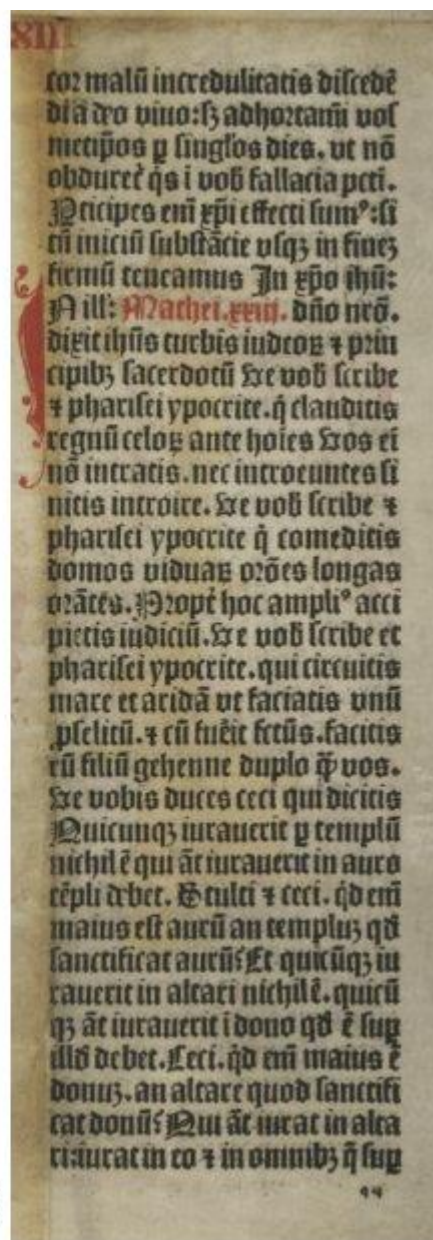 XIII
cor malū incredulitatis discedē
di a deo viuo: sꝫ adhortamī vos
metip̄os ꝑ singĺos dies. vt nō
obduret᷑ q̇s i vob̄ fallacia pctī.
Pticipes em̄ xp̄i effecti sumꝰ: si
tn̄ iniciū substātie vsqꝫ in fineꝫ
firmū teneamus In xp̄o ih̄u:
N ill': Mathei. xxiii. dn̄o nr̄o.
dixit ih̄us turbis iudeoꝝ ⁊ prin
cipibꝫ sacerdotū Ve vob̄ scribe
⁊ pharisei ypocrite. q̇ clauditis
regnū celoꝝ ante hoīes Vos ei
nō intratis. nec introeuntes si
nitis introire. Ve vob̄ scribe ⁊
pharisei ypocrite q̇ comeditis
domos viduaꝝ orōes longas
orātes. Propt̄ hoc ampliꝰ acci
pietis iudiciū. Ve vob̄ scribe et
pharisei ypocrite. qui circuitis
mare et aridā vt faciatis vnū
ꝓselitū. ⁊ cū fuēit fctūs. facitis
eū filiū gehenne duplo q̄ȝ vos.
Ve vobis duces ceci qui dicitis
Quicunqꝫ iurauerit ꝑ templū
nichil ē qui āt iurauerit in auro
tēpli debet. Stulti ⁊ ceci. q̇d em̄
maius est aurū an templuꝫ qd̄
sanctificat aurū? Et quicūqꝫ iu
rauerit in altari nichil ē. quicū
qꝫ āt iurauerit i dono qd̄ ē suꝑ
illd̄ debet. Ceci. q̇d em̄ maius ē
donuꝫ. an altare quod sanctifi
cat donū? Qui āt iurat in alta
ri: iurat in eo ⁊ in omnibꝫ q̄ suꝑ